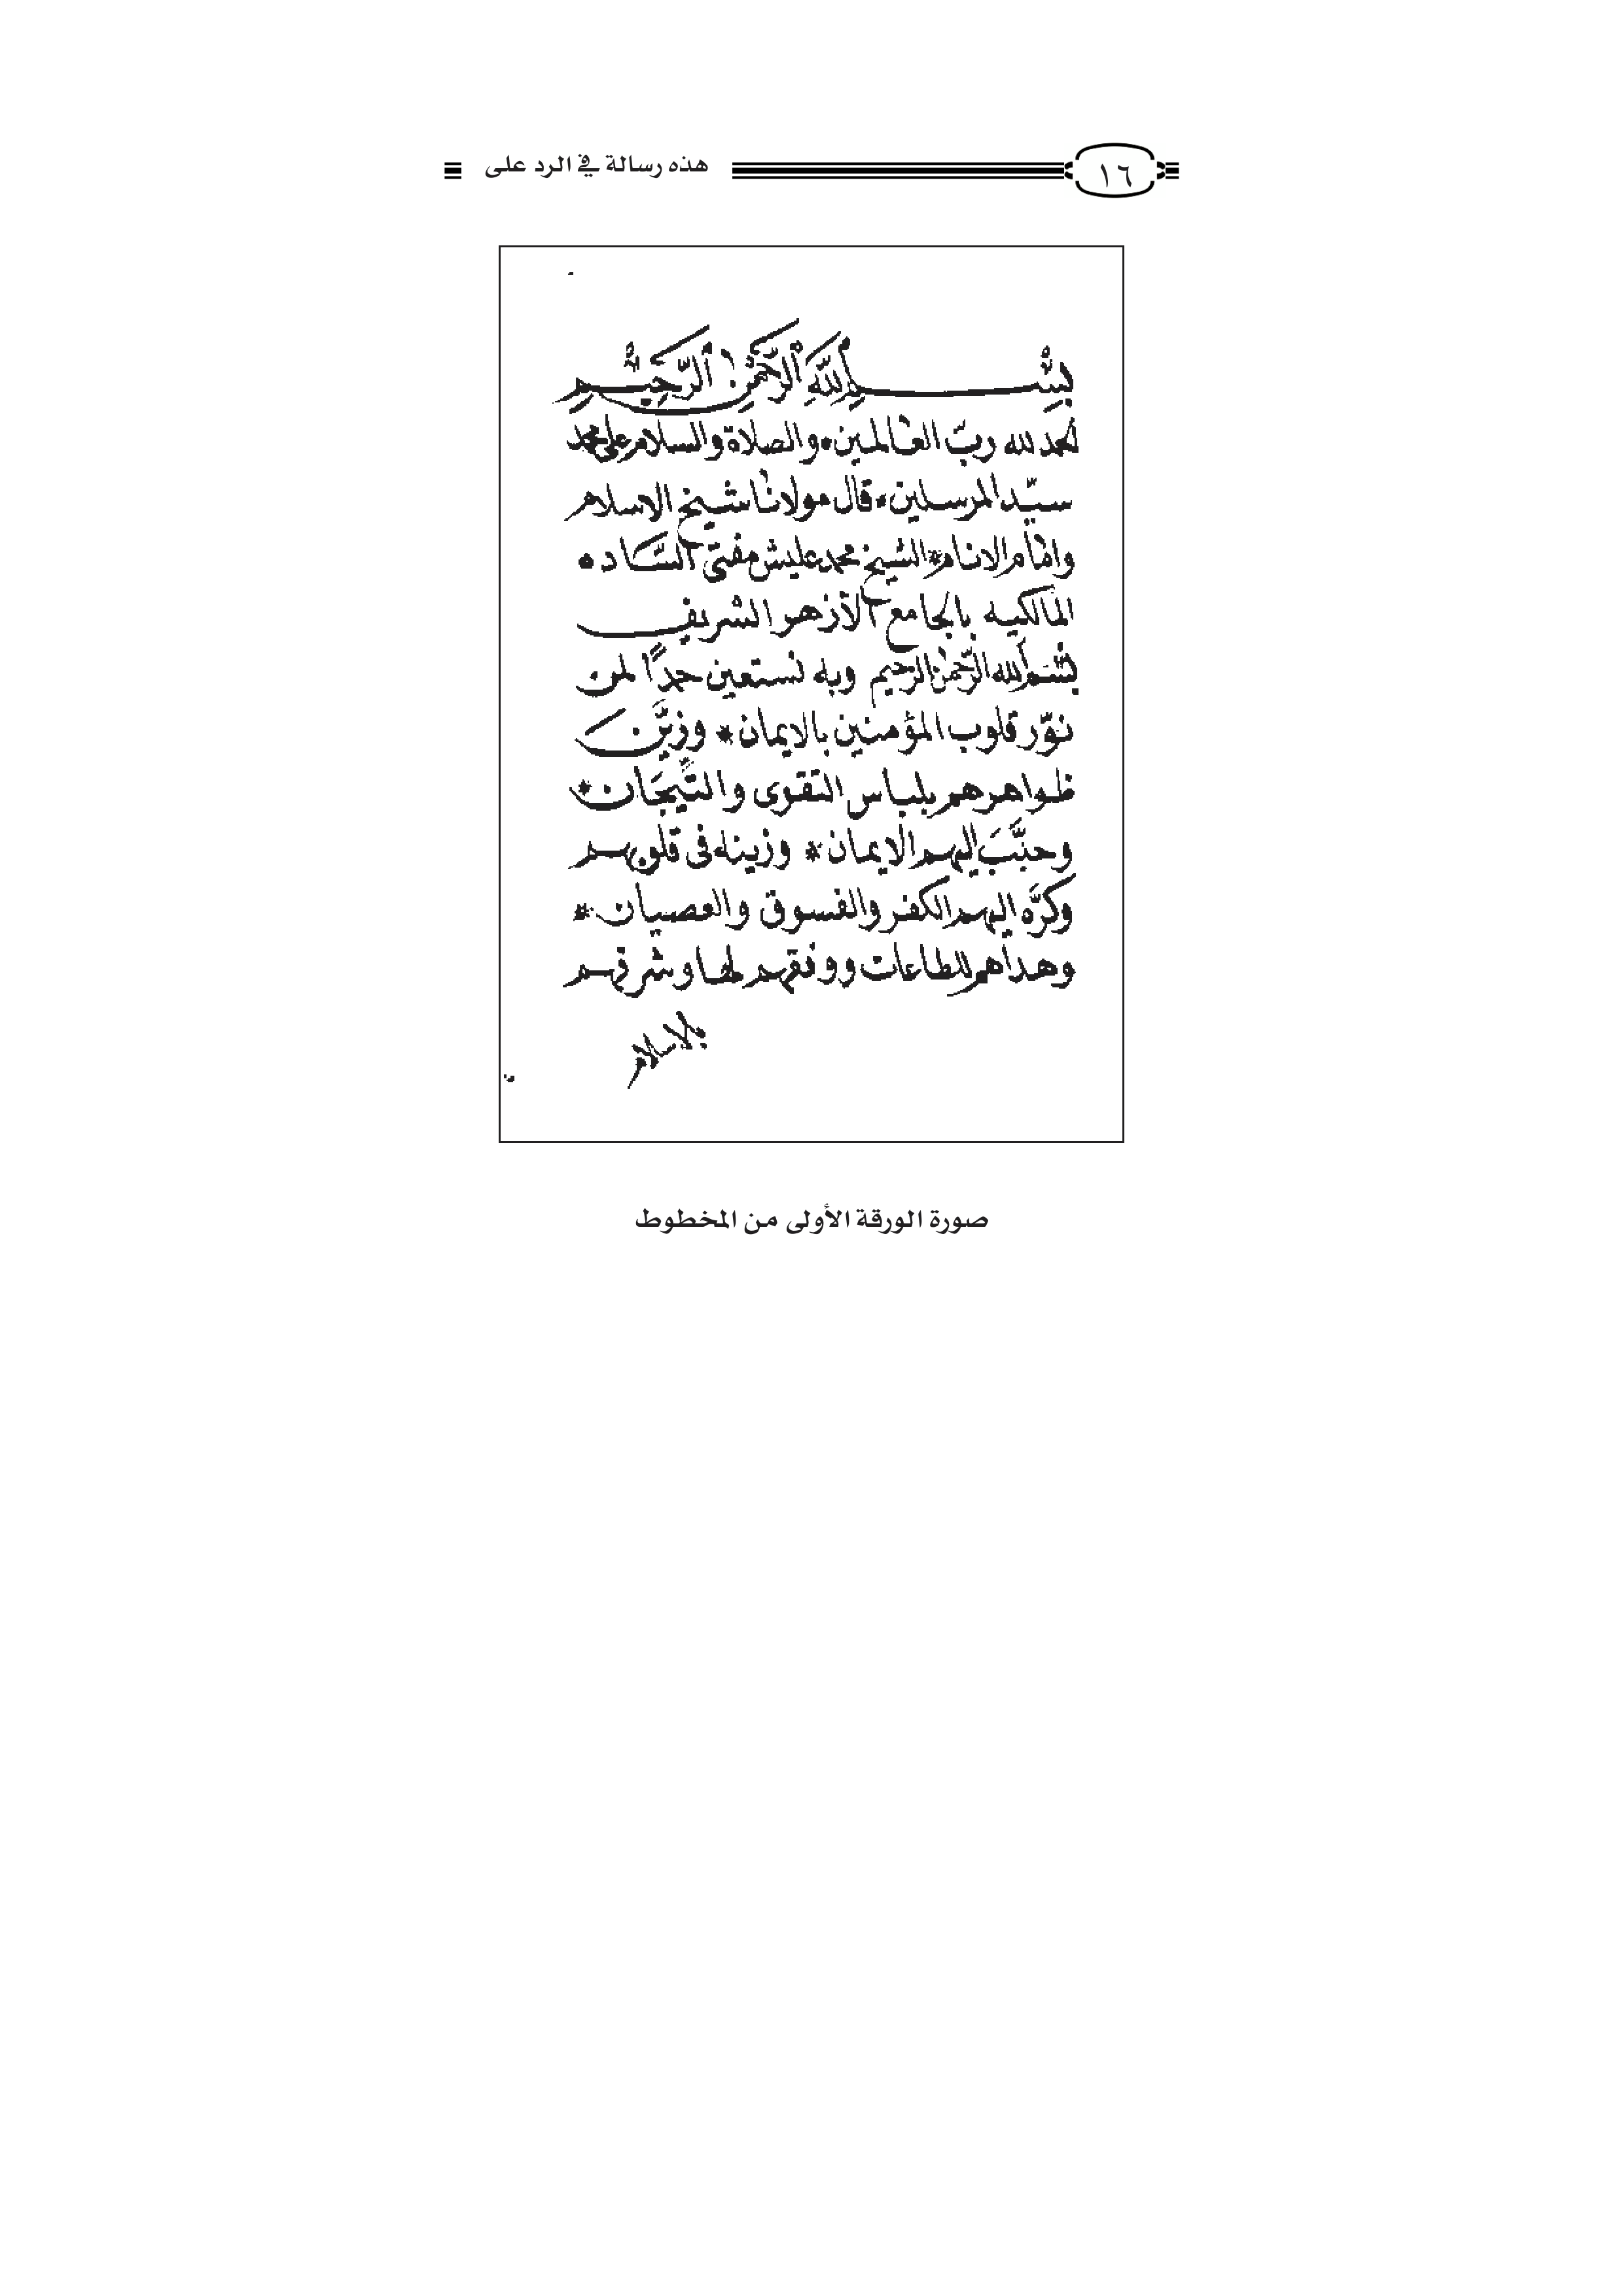 ١٦ هذه رسالة في الرد على
بسم الله الرحمن الرحيم
الحمد لله ربّ العالمين، والصلاة والسلام على محمد
سيّد المرسلين، قال مولانا شيخ الاسلام
وامام الانام * الشيخ محمد عليش مفتى السّاده
المالكيه بالجامع الأزهر الشريف
بسم الله الرّحمن الرحيم وبه نستعين حمدًا لمن
نوّر قلوب المؤمنين بالايمان * وزيَّن
ظواهرهم بلباس التقوى والتِّيجَان *
وحبَّبَ اليهم الايمان * وزينه فى قلوبهم
وكرَّه اليهم الكفر والفسوق والعصيان *
وهداهم للطاعات ووفقهم لها وشرفهم
بالاسلام
صورة الورقة الأولى من المخطوط